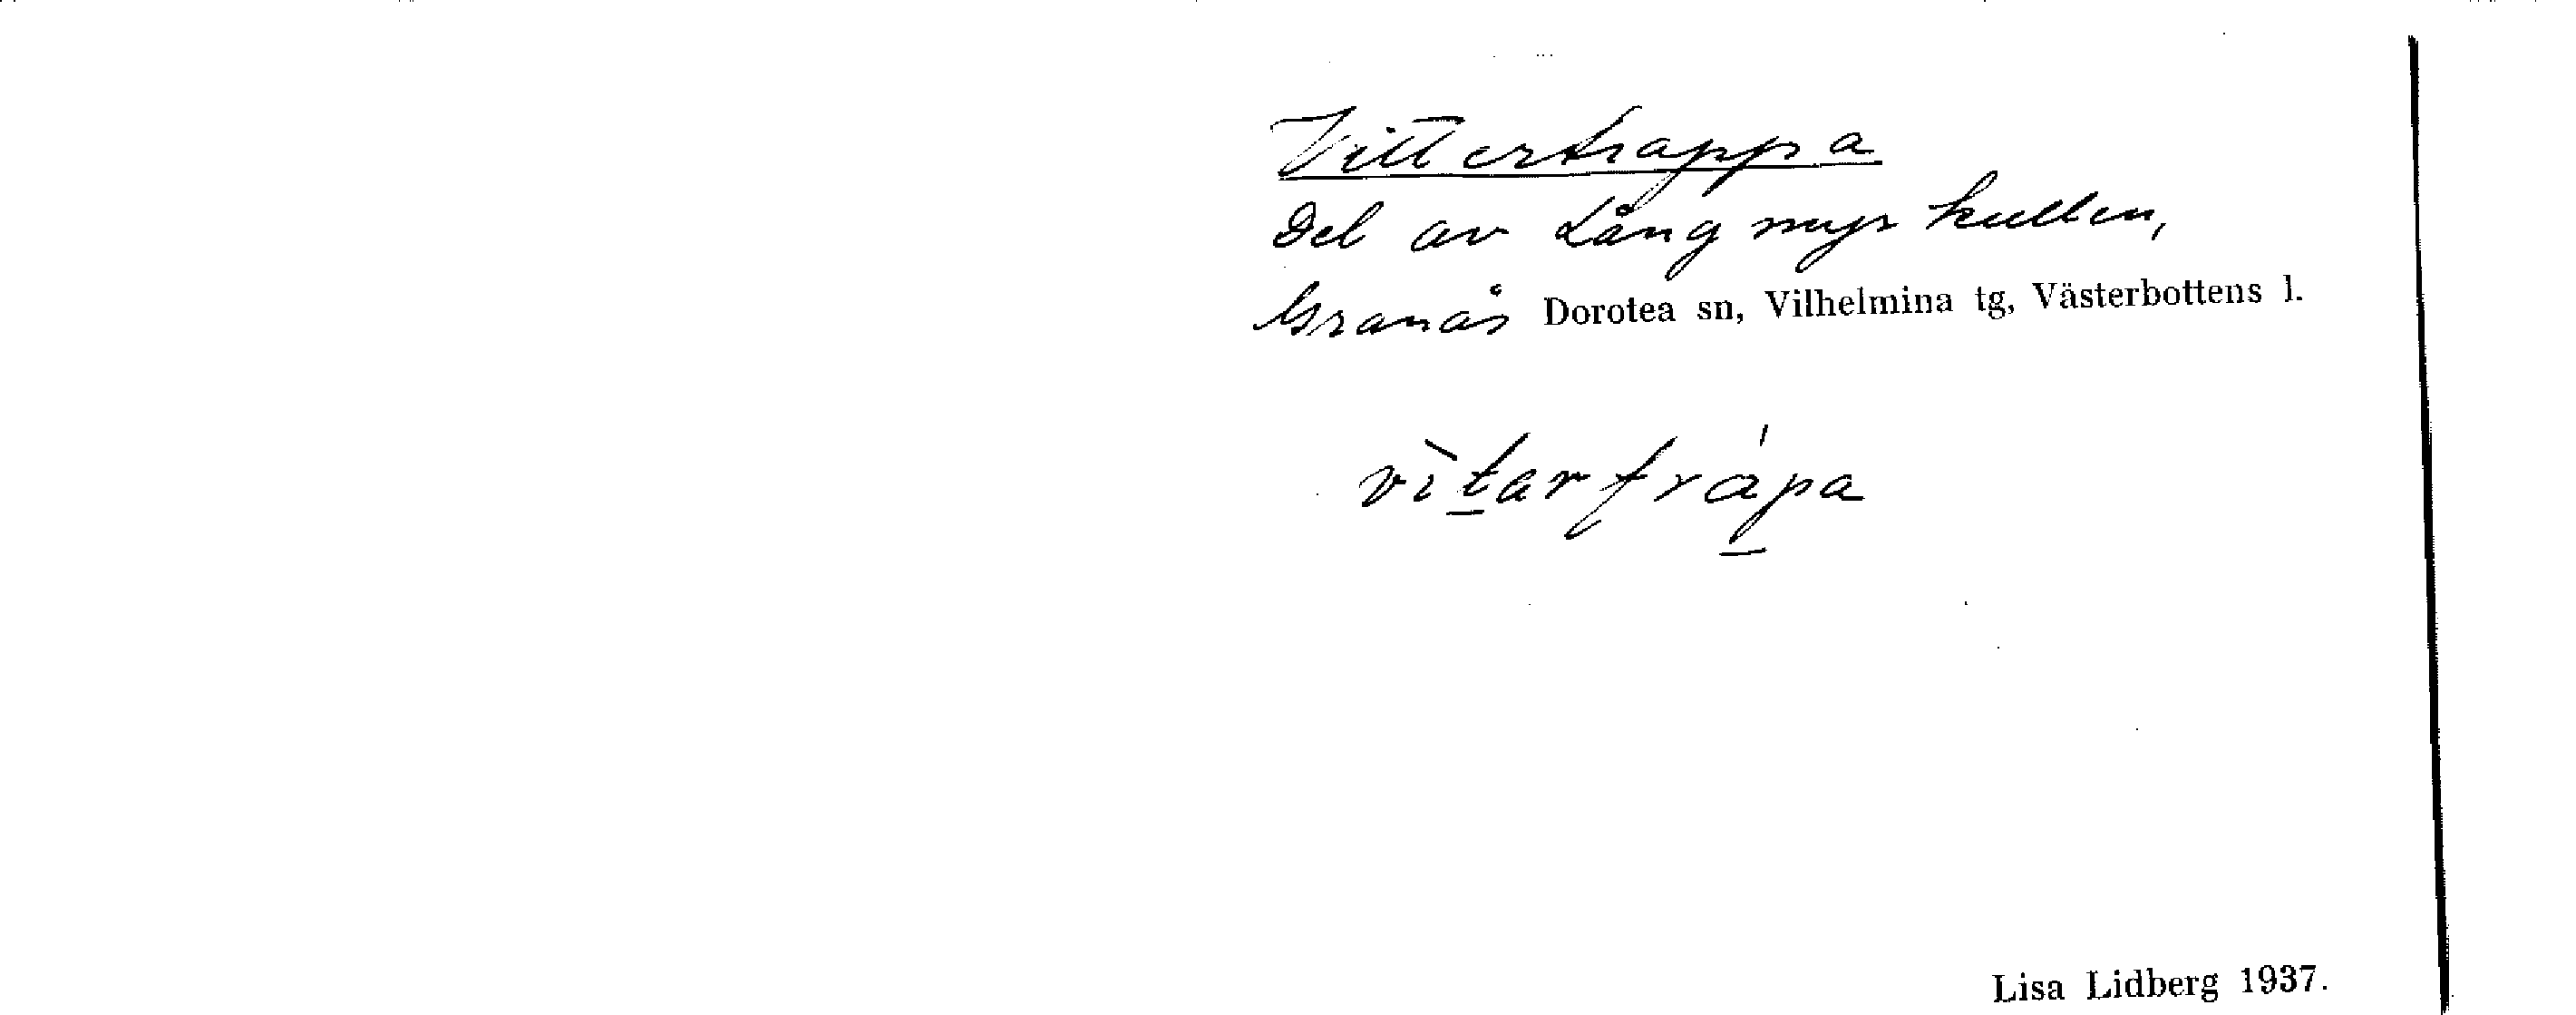 Vittertrappa
Del av Långmyrkullen,
Granås Dorotea sn, Vilhelmina tg, Västerbottens l.
vìtartrápa
Lisa Lidberg 1937.